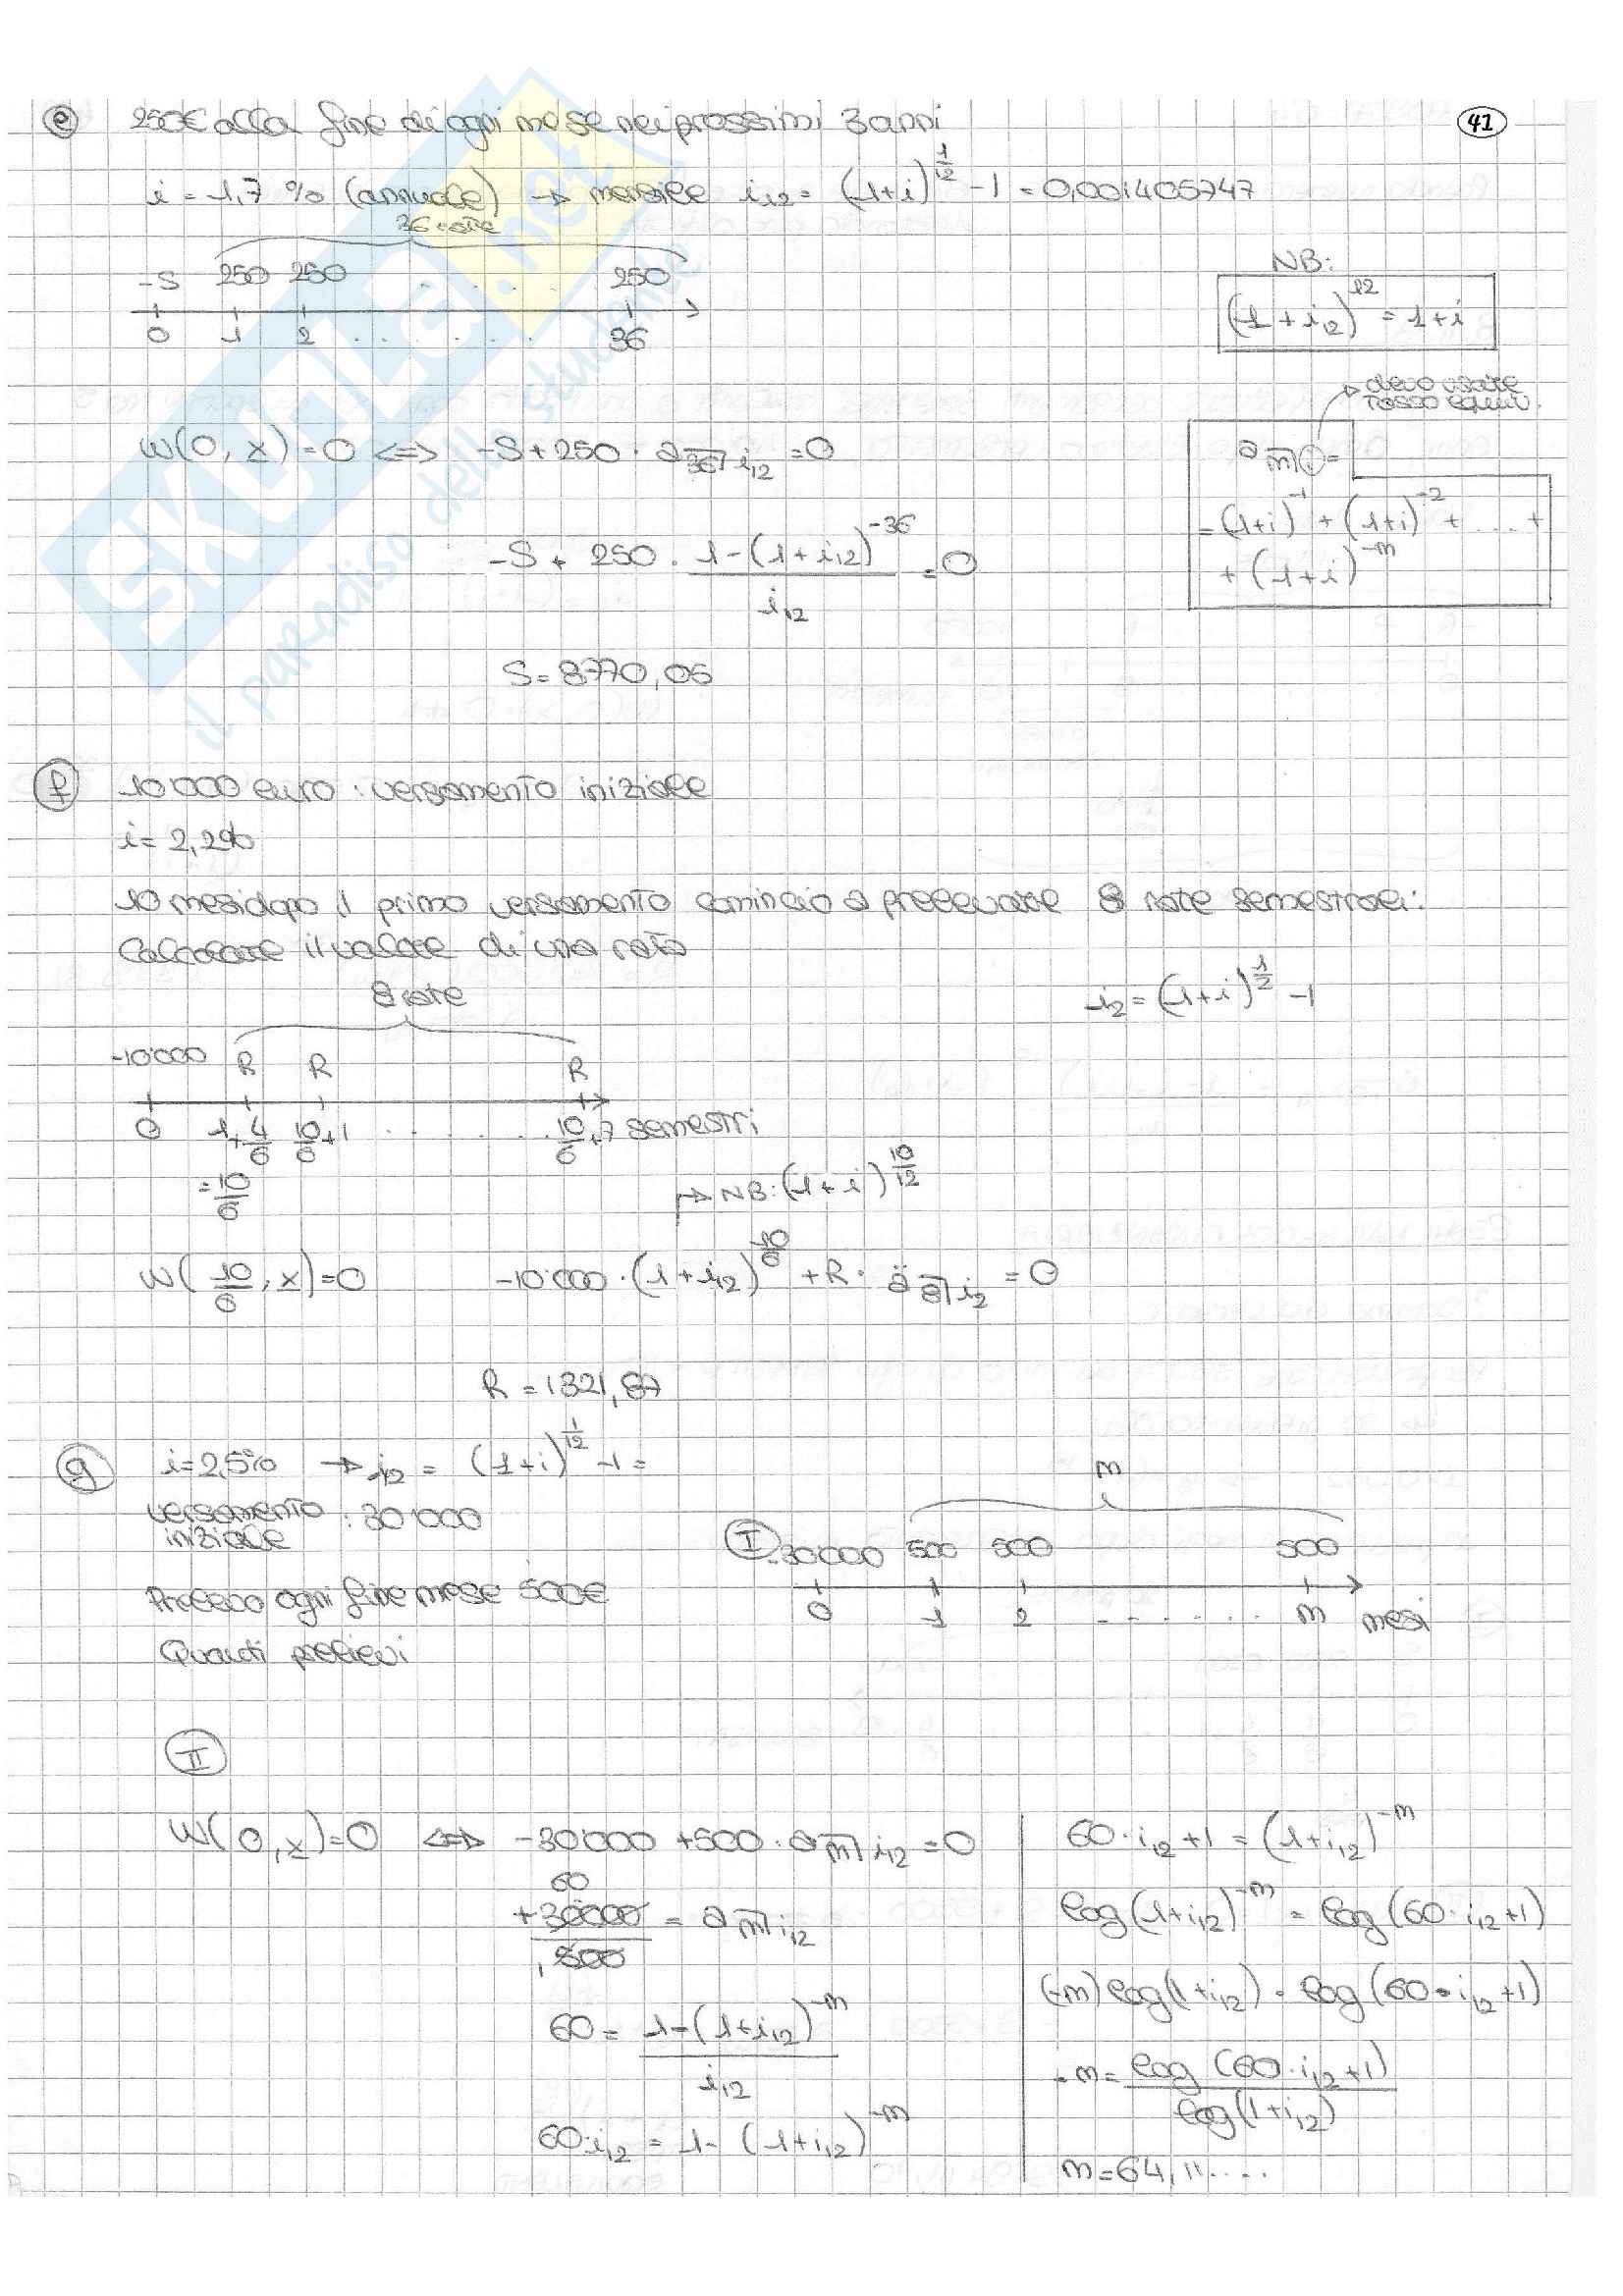 e 250€ alla fine di ogni mese nei prossimi 3 anni
41
i = 1,7 % (annuale) → mensile i₁₂ = (1+i)^(1/12) - 1 = 0,001405747
36 rate
-S 250 250 . . . . . 250
0 1 2 . . . . . . 36
NB:
(1 + i₁₂)^12 = 1+i
→ devo usare
tasso equiv.
a m̅| i =
= (1+i)^-1 + (1+i)^-2 + ... +
+ (1+i)^-m
W(0, x) = 0 <=> -S + 250 · a 36̅| i₁₂ = 0
-S + 250 · (1-(1+i₁₂)^-36)/i₁₂ = 0
S = 8770,05
f 10'000 euro : versamento iniziale
i = 2,2%
10 mesi dopo il primo versamento comincio a prelevare 8 rate semestrali:
Calcolare il valore di una rata
8 rate
i₂ = (1+i)^(1/2) - 1
-10'000 R R R
0 1+4/6 10/6+1 . . . . . . . 10/6+7 semestri
= 10/6
→ NB: (1+i)^(10/12)
W(10/6, x) = 0 -10'000 · (1+i₁₂)^(10/6) + R · ä 8̅| i₂ = 0
R = 1321,87
g i = 2,5% → i₁₂ = (1+i)^(1/12) - 1 =
versamento
iniziale : 30'000
Prelevo ogni fine mese 500€
Quanti prelievi
m
I -30'000 500 500 500
0 1 2 - - - . . . . m mesi
II
W(0, x) = 0 <=> -30'000 + 500 · a m̅| i₁₂ = 0
60
+30000/500 = a m̅| i₁₂
60 = (1-(1+i₁₂)^-m)/i₁₂
60·i₁₂ = 1 - (1+i₁₂)^-m
60·i₁₂+1 = (1+i₁₂)^-m
log(1+i₁₂)^-m = log(60·i₁₂+1)
(-m) log(1+i₁₂) = log(60·i₁₂+1)
-m = log(60·i₁₂+1)/log(1+i₁₂)
m = 64,11....
SKUOLA.net
il paradiso dello studente